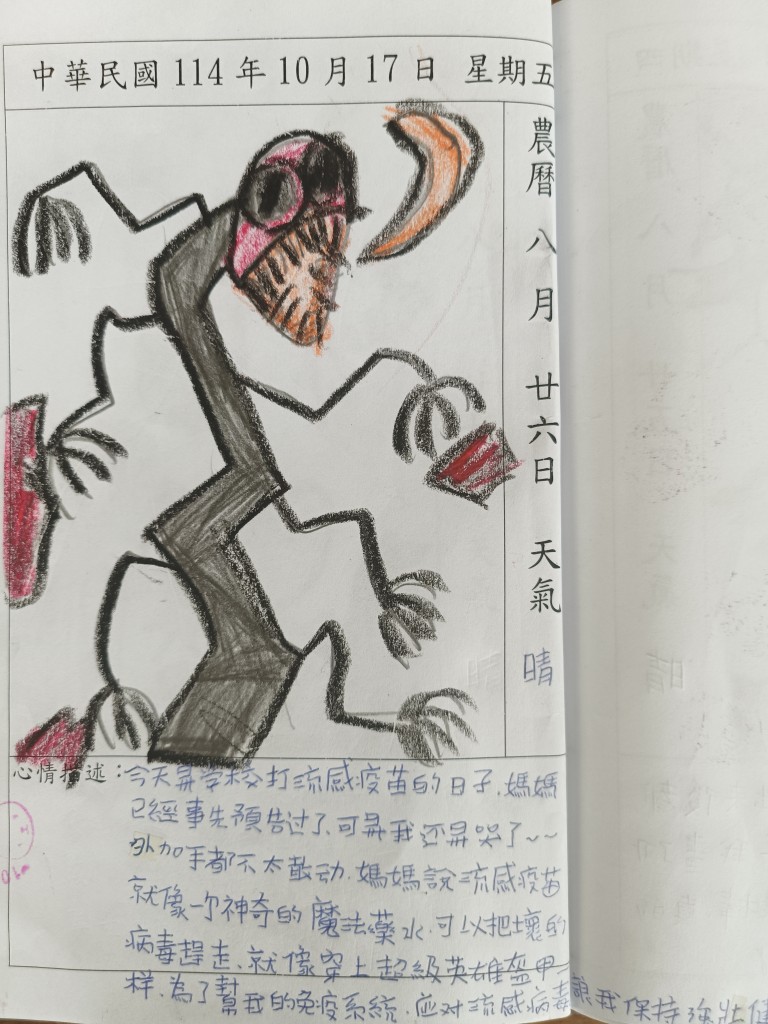 中華民國 114 年 10 月 17 日 星期五
農曆 八月 廿六日 天氣 晴
心情描述：今天是学校打流感疫苗的日子，媽媽
已經事先預告过了，可是我还是哭了~~
外加手都不太敢动，媽媽說流感疫苗
就像一个神奇的魔法藥水，可以把壞的
病毒趕走，就像穿上超級英雄盔甲一
样，為了幫我的免疫系統，应对流感病毒
讓我保持强壯健